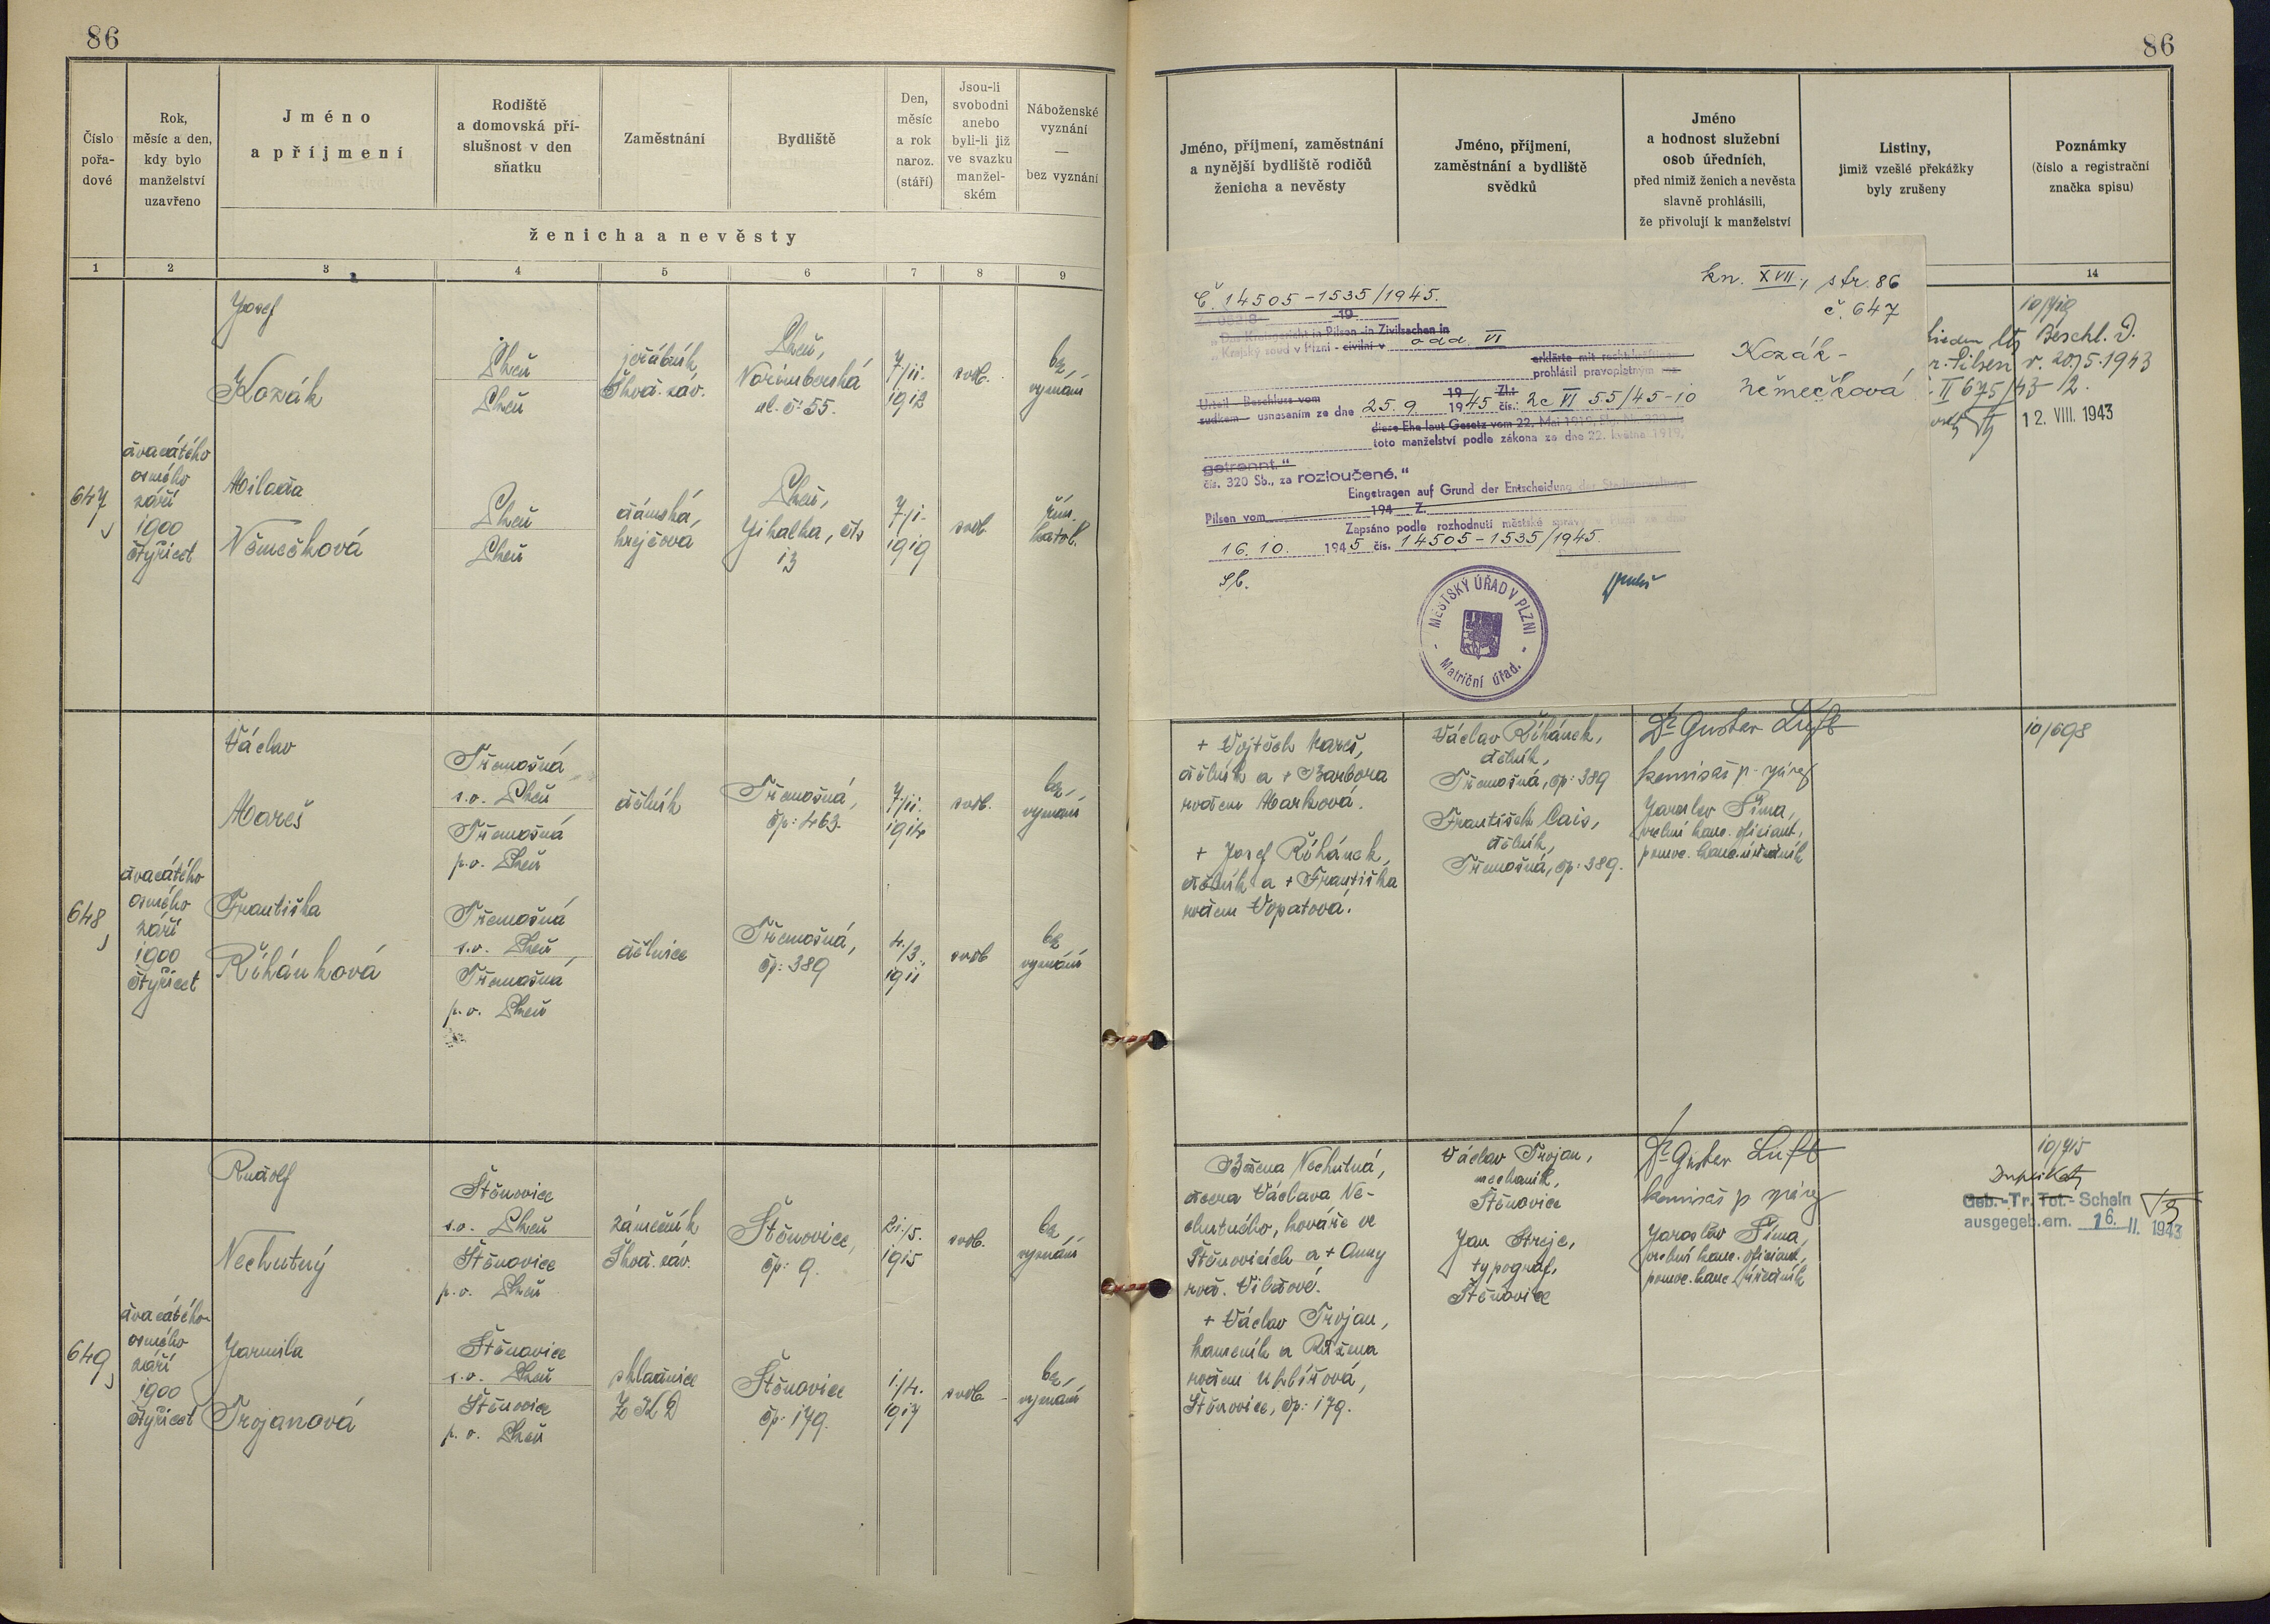 86
Číslo
pořa-
dové
Rok,
měsíc a den,
kdy bylo
manželství
uzavřeno
Jméno
a příjmení
Rodiště
a domovská pří-
slušnost v den
sňatku
Zaměstnání
Bydliště
Den,
měsíc
a rok
naroz.
(stáří)
Jsou-li
svobodni
anebo
byli-li již
ve svazku
manžel-
ském
Náboženské
vyznání
—
bez vyznání
ženicha a nevěsty
1 2 3 4 5 6 7 8 9
647
dvacátého
osmého
září
1900
čtyřicet
Josef
Kozák
Plzeň
Plzeň
jeřábník
Škod. záv.
Plzeň,
Norimberská
ul. č: 55.
7./11.
1912
svob.
bez
vyznání
Milada
Němečková
Plzeň
Plzeň
dámská,
krejčová
Plzeň,
Jikalka, čís
13
7./1.
1919
svob
řím.
katol.
648
dvacátého
osmého
září
1900
čtyřicet
Václav
Mareš
Třemošná
s.o. Plzeň
Třemošná
p.o. Plzeň
dělník
Třemošná,
čp: 463.
7./11.
1914
svob.
bez
vyznání
Františka
Říhánková
Třemošná
s.o. Plzeň
Třemošná
p.o. Plzeň
dělnice
Třemošná,
čp: 389
4./3.
1911
svob
bez
vyznání
649
dvacátého
osmého
září
1900
čtyřicet
Rudolf
Nechutný
Štěnovice
s.o. Plzeň
Štěnovice
p.o. Plzeň
zámečník
Škod. záv.
Štěnovice,
čp: 9.
21./5.
1915
svob.
bez
vyznání
Jarmila
Trojanová
Štěnovice
s.o. Plzeň
Štěnovice
p.o. Plzeň
skladnice
Štěnovice
čp: 179.
1./4.
1917
svob
bez
vyznání
86
Jméno, příjmení, zaměstnání
a nynější bydliště rodičů
ženicha a nevěsty
Jméno, příjmení,
zaměstnání a bydliště
svědků
Jméno
a hodnost služební
osob úředních,
před nimiž ženich a nevěsta
slavně prohlásili,
že přivolují k manželství
Listiny,
jimiž vzešlé překážky
byly zrušeny
Poznámky
(číslo a registrační
značka spisu)
14
kn. XVII., str. 86
č. 647
Kozák-
Němečková
Č. 14505-1535/1945.
19
„Das Kreisgericht in Pilsen in Zivilsachen in
„Krajský soud v Plzni - civilní v odd. VI
erklärte mit rechtskräftigem
prohlásil pravoplatným
Urteil - Beschluss vom 19 Zl.:
sudkem - usnesením ze dne 25.9. 1945 čís.: 2c VI 55/45-10
diese Ehe laut Gesetz vom 22. Mai 1919,
toto manželství podle zákona ze dne 22. května 1919,
getrennt."
čís. 320 Sb., za rozloučené."
Eingetragen auf Grund der Entscheidung der Stadtverwaltung
Pilsen vom 194 Z.
Zapsáno podle rozhodnutí městské správy
16.10. 1945 čís. 14505-1535/1945.
MĚSTSKÝ ÚŘAD V PLZNI
Matriční úřad.
Beschl. D.
Pilsen v. 20/5.1943
II 675/43-12.
12. VIII. 1943
+ Vojtěch Mareš,
dělník a + Barbora
rodem Marková.
+ Josef Říhánek,
dělník a + Františka
rodem Vopatová.
Václav Říhánek,
dělník,
Třemošná, čp: 389
František Cais,
dělník,
Třemošná, čp: 389.
Dr Gustav Luft
komisař p.
Jaroslav Šíma,
vrchní kanc. oficiant,
pomoc. kanc. úředník
10/698
Božena Nechutná,
dcera Václava Ne-
chutného, kováře ve
Štěnovicích a + Anny
rod.
+ Václav Trojan,
kameník a Růžena
rodem
Štěnovice, čp: 179.
Václav Trojan,
mechanik,
Štěnovice
Jan Strejc,
typograf,
Štěnovice
Dr Gustav Luft
komisař p.
Jaroslav Šíma,
vrchní kanc. oficiant,
pomoc. kanc. úředník
10/715
Duplikat
Geb.-Tr. Tot.-Schein
ausgegeb. am. 16. II. 1943